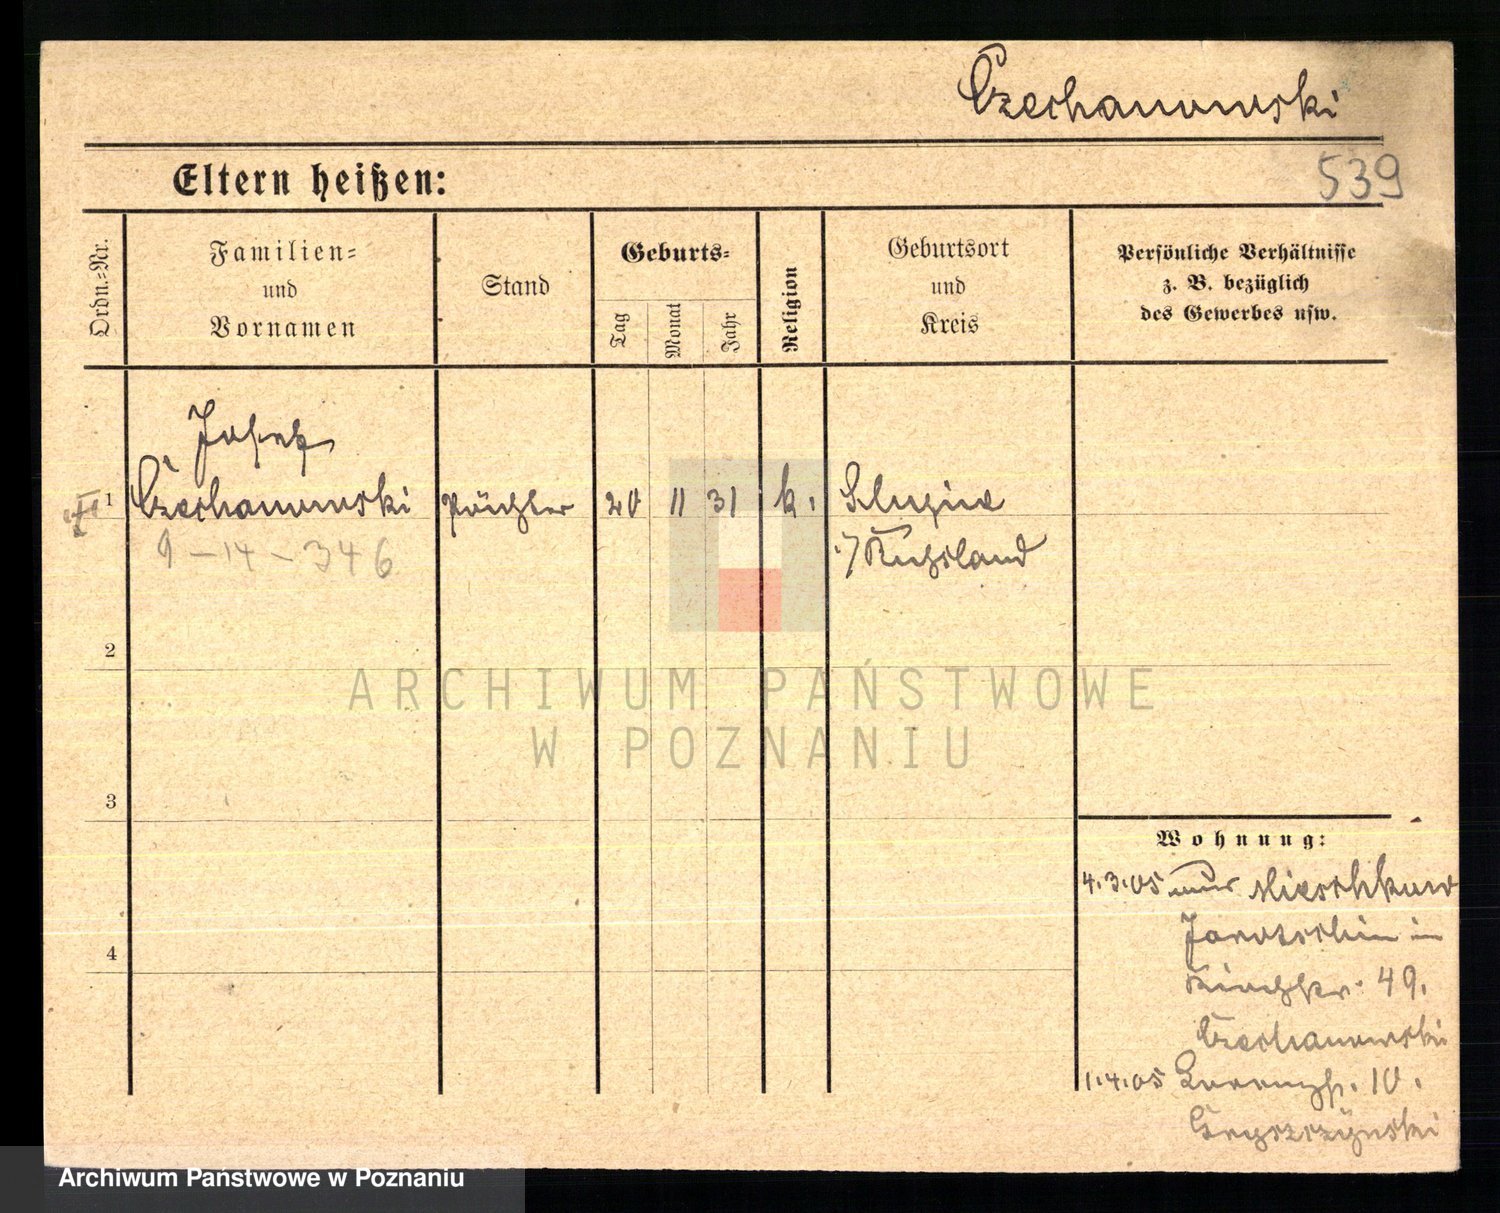 Czechanowski
Eltern heißen:
539
Ordn.=Nr.
Familien=
und
Vornamen
Stand
Geburts=
Tag
Monat
Jahr
Religion
Geburtsort
und
Kreis
Persönliche Verhältnisse
z. B. bezüglich
des Gewerbes usw.
Josef
1 Czechanowski Pächter 20 11 31 k. Slupia
9-14-346
i/ Rußland
2
3
4
ARCHIWUM PAŃSTWOWE
W POZNANIU
Wohnung:
4.3.05 aus Mieschkow
Jarotschin in
49.
Czechanowski
1.4.05 10.
Archiwum Państwowe w Poznaniu